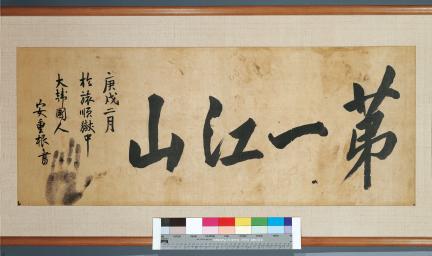 苐一江山
庚戌二月
於旅順獄中
大韓國人
安重根書